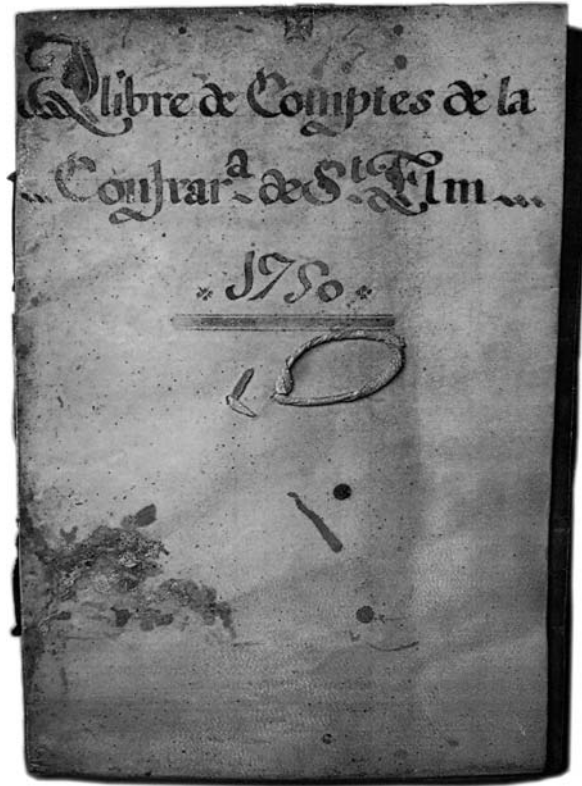 Llibre de Comptes de la
Confrar.ª de S.t Elm
1750